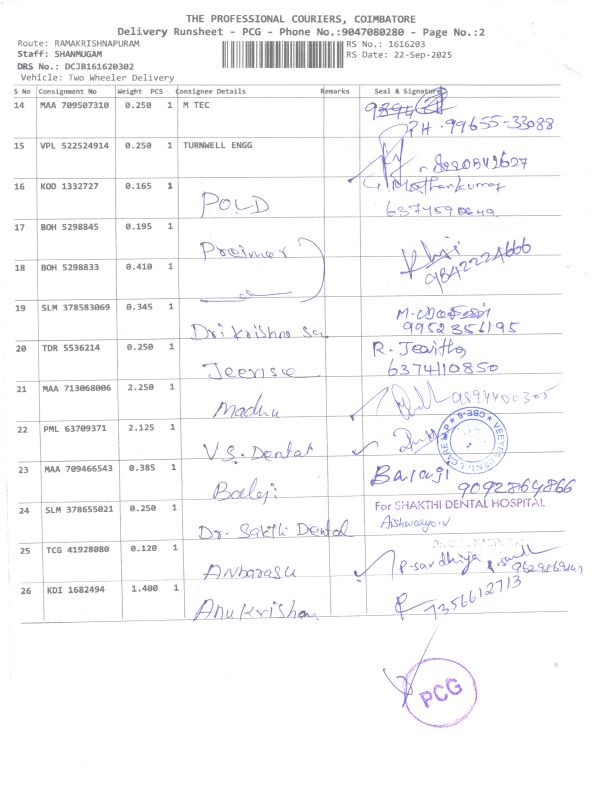 THE PROFESSIONAL COURIERS, COIMBATORE
Delivery Runsheet - PCG - Phone No.:9047080280 - Page No.:2
Route: RAMAKRISHNAPURAM
RS No.: 1616203
Staff: SHANMUGAM
RS Date: 22-Sep-2025
DRS No.: DCJB161620302
Vehicle: Two Wheeler Delivery
S No Consignment No Weight PCS Consignee Details Remarks Seal & Signature
14 MAA 709507310 0.250 1 M TEC
PH. 99655-33088
15 VPL 522524914 0.250 1 TURNWELL ENGG
16 KOD 1332727 0.165 1 POLD
Mathankumar
17 BOH 5298845 0.195 1
18 BOH 5298833 0.410 1
19 SLM 378583069 0.345 1
9952356195
20 TDR 5536214 0.250 1
R. Jevitha
6374110850
21 MAA 713068006 2.250 1 Madhu
22 PML 63709371 2.125 1 V.S. Dental
23 MAA 709466543 0.385 1 Balaji
Balaji
9092864866
24 SLM 378655021 0.250 1 Dr. Sakthi Dental
For SHAKTHI DENTAL HOSPITAL
Aishwarya.V
25 TCG 41928080 0.120 1 Anbarasu
26 KDI 1682494 1.400 1 Anukrishna
7356612713
PCG